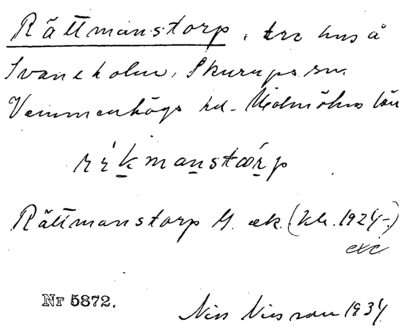 Rättmanstorp, tre hus å
Svaneholm, Skurups sn.
Vemmenhögs hd. Malmöhus län
Rättmanstorp G. ek. (Kb. 1924-)
exc
Nr 5872.
Nils Nilsson 1934.